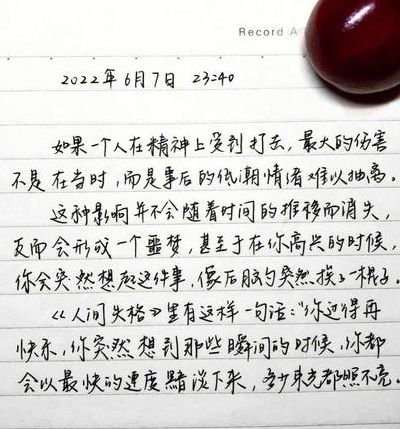 Record A
2022年6月7日 23:40
如果一个人在精神上受到打击,最大的伤害
不是在当时,而是事后的低潮情绪难以抽离。
这种影响并不会随着时间的推移而消失,
反而会形成一个噩梦,甚至于在你高兴的时候,
你会突然想起这件事,像后脑勺突然挨了一棍子。
《人间失格》里有这样一句话:“你过得再
快乐,你突然想到那些瞬间的时候,你都
会以最快的速度黯淡下来,多少束光都照不亮。